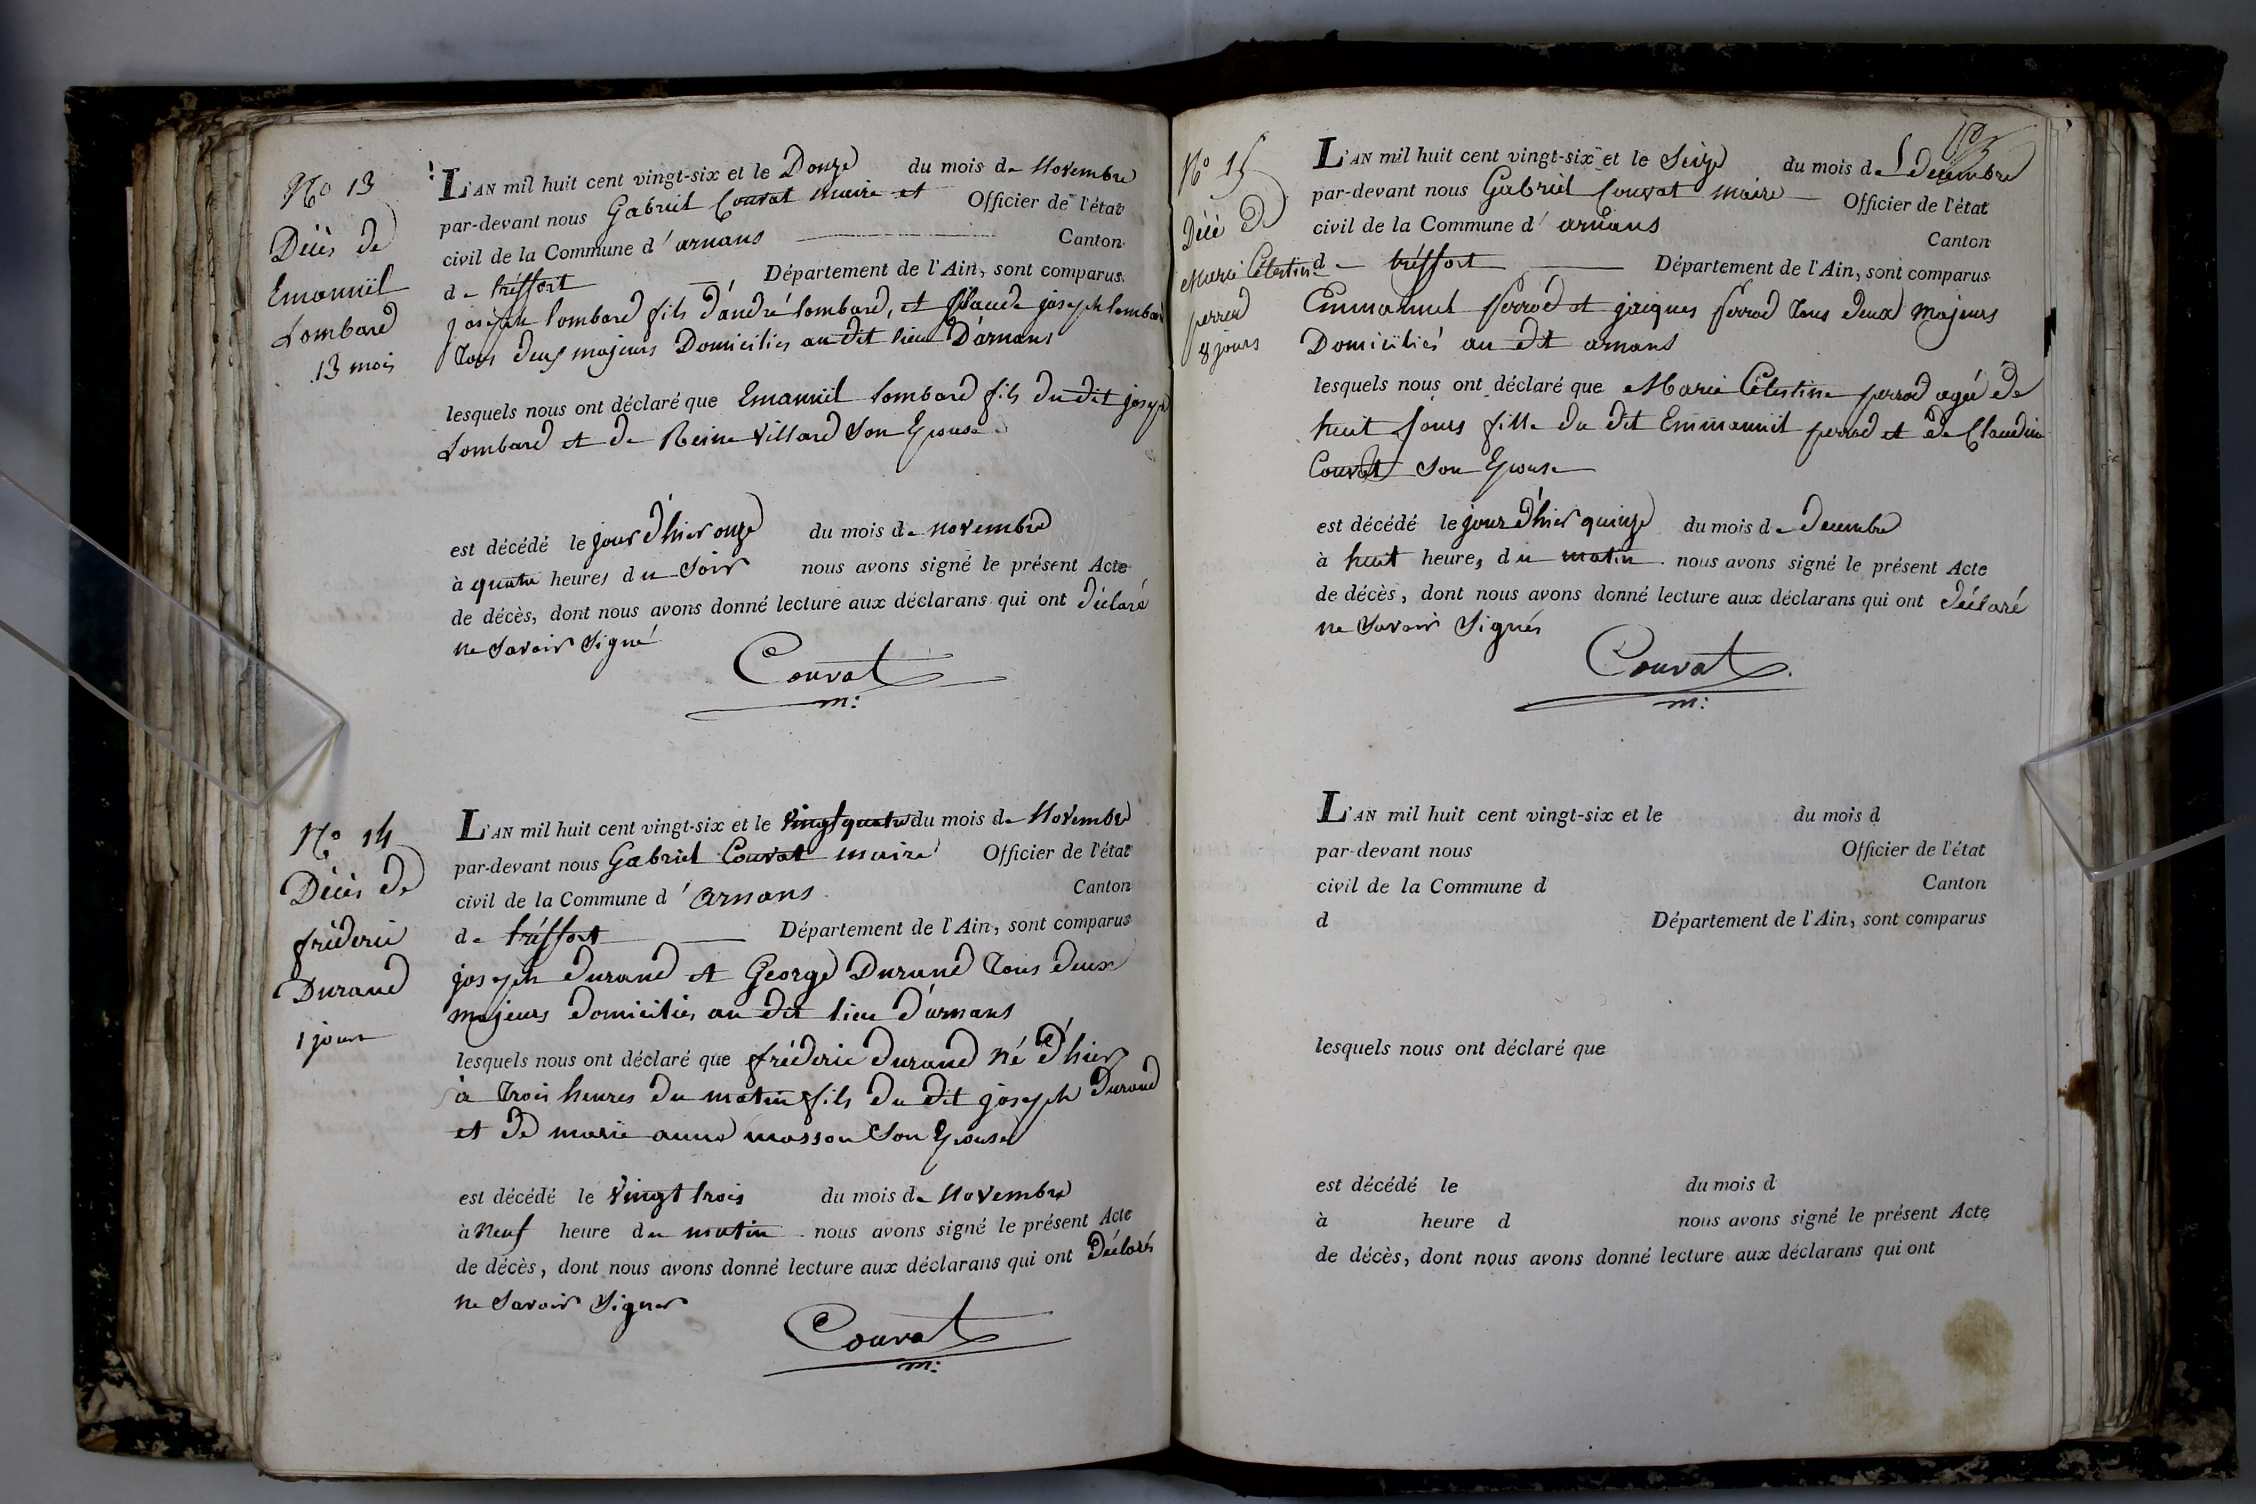 No 13
Décès de
Emanuiel
Lombard
13 mois
L'AN mil huit cent vingt-six et le Douze du mois de Novembre
par-devant nous Gabriel Couvat maire et Officier de l'état
civil de la Commune d'arnans Canton
de tréffort Département de l'Ain, sont comparus
joseph lombard fils d'andré lombard, et joseph lombard
tous deux majeurs Domiciliés au dit lieu D'arnans
lesquels nous ont déclaré que Emanuiel lombard fils du dit joseph
Lombard et de Reine Villard Son Epouse
est décédé le jour d'hier onze du mois de novembre
à quatre heures du Soir nous avons signé le présent Acte
de décès, dont nous avons donné lecture aux déclarans qui ont déclaré
ne Savoir Signé
Couvat
m:
No 14
Décès de
fréderic
Durand
1 jour
L'AN mil huit cent vingt-six et le Vingt quatre du mois de Novembre
par-devant nous Gabriel Couvat maire Officier de l'état
civil de la Commune d'Arnans Canton
de tréffort Département de l'Ain, sont comparus
joseph durand et George Durand tous deux
majeurs domiciliés au dit lieu d'arnans
lesquels nous ont déclaré que fréderic durand né d'hier
à trois heures du matin fils du dit joseph Durand
et de marie anne masson Son Epouse
est décédé le Vingt trois du mois de Novembre
à Neuf heure du matin nous avons signé le présent Acte
de décès, dont nous avons donné lecture aux déclarans qui ont Déclarés
ne Savoir Signer
Couvat
m:
No 15
Décè de
Marie Célestine
perrod
8 jours
L'AN mil huit cent vingt-six et le Seize du mois de decembre
par-devant nous Gabriel Couvat maire Officier de l'état
civil de la Commune d'arnans Canton
de tréffort Département de l'Ain, sont comparus
Emmanuel perrod et jacques perrod tous deux majeurs
Domiciliés au dit arnans
lesquels nous ont déclaré que Marie Célestine perrod agée de
huit jours fille du dit Emmanuel perrod et de Claudine
Couvat Son Epouse
est décédé le jour d'hier quinze du mois de decembre
à huit heures du matin nous avons signé le présent Acte
de décès, dont nous avons donné lecture aux déclarans qui ont déclaré
ne Savoir Signés
Couvat
m:
L'AN mil huit cent vingt-six et le du mois d
par-devant nous Officier de l'état
civil de la Commune d Canton
d Département de l'Ain, sont comparus
lesquels nous ont déclaré que
est décédé le du mois d
à heure d nous avons signé le présent Acte
de décès, dont nous avons donné lecture aux déclarans qui ont